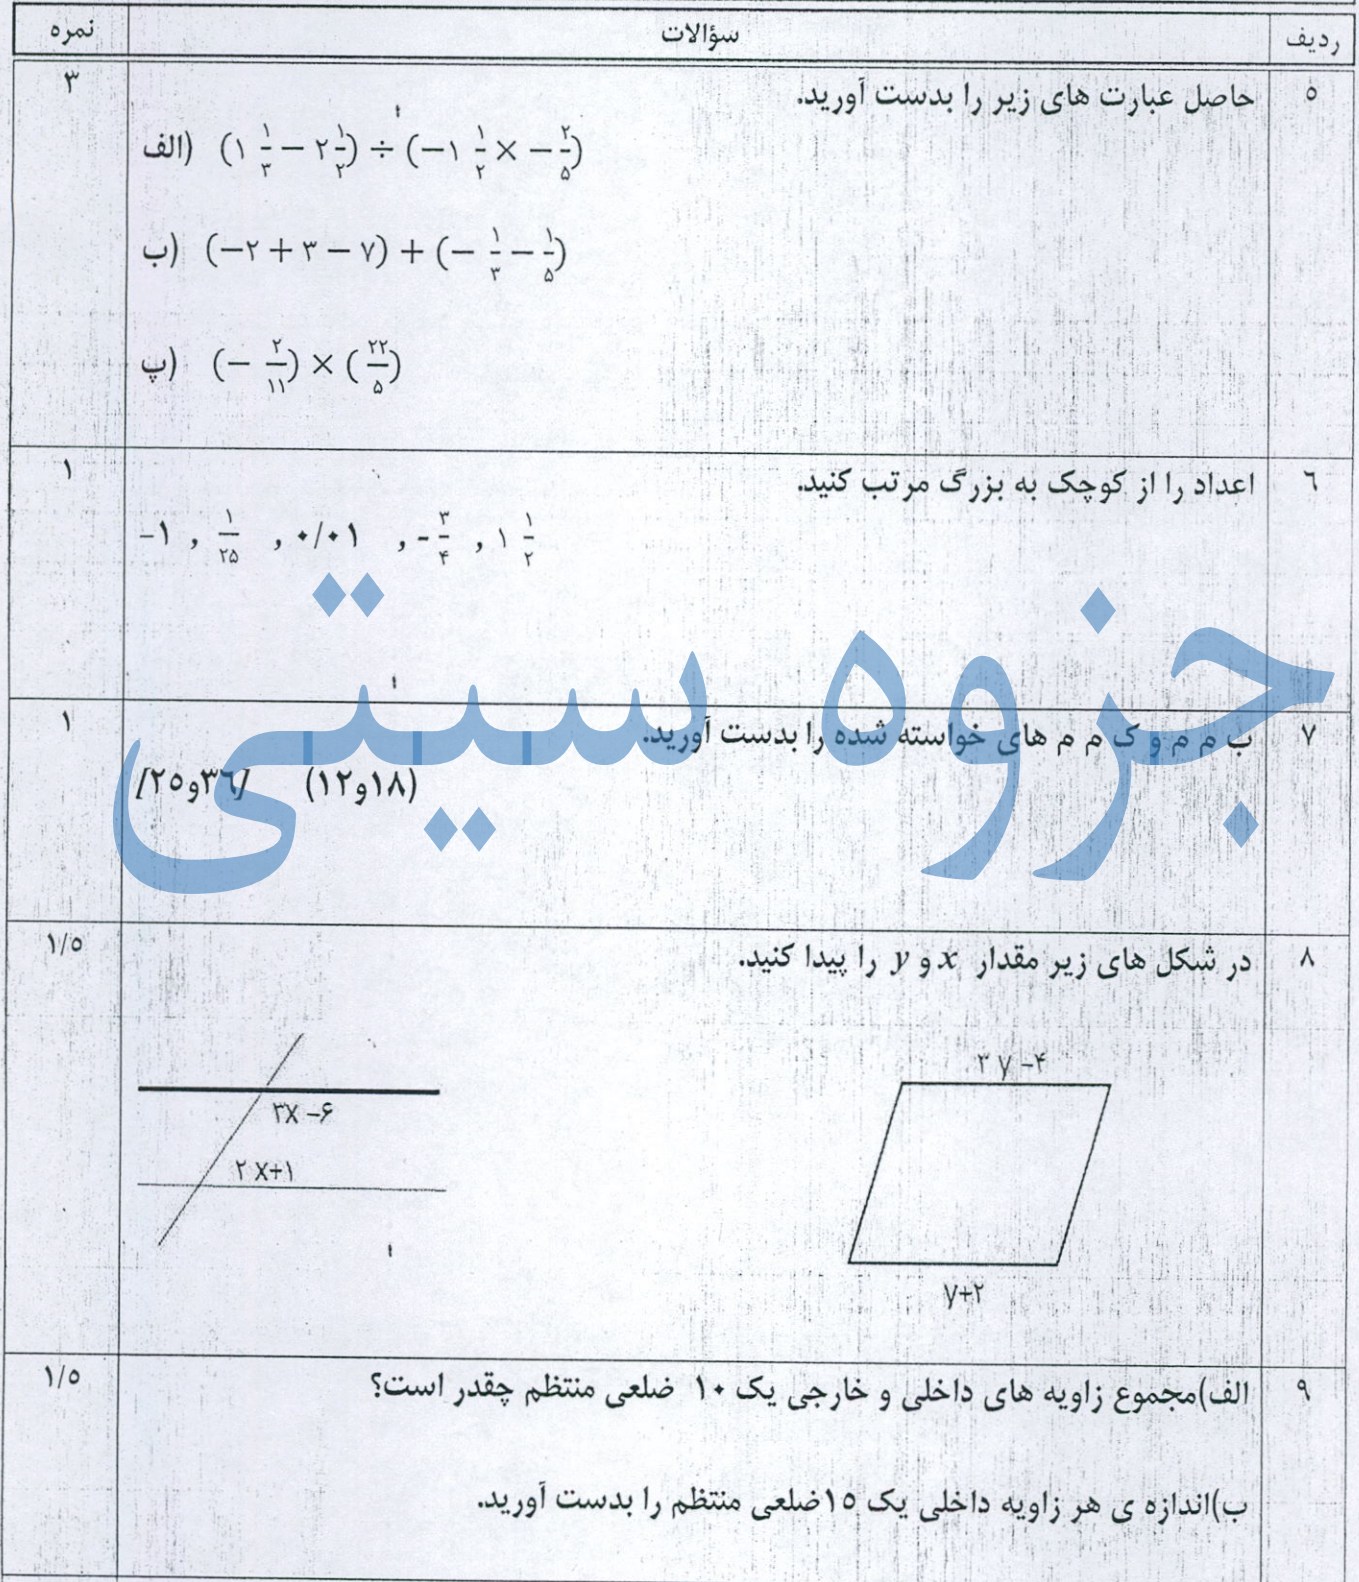 ردیف سؤالات نمره
۵ حاصل عبارت های زیر را بدست آورید. ۳
الف) (۱ ۱/۳ − ۲ ۱/۲) ÷ (−۱ ۱/۲ × −۲/۵)
ب) (−۲ + ۳ − ۷) + (− ۱/۳ − ۱/۵)
پ) (− ۲/۱۱) × (۲۲/۵)
۶ اعداد را از کوچک به بزرگ مرتب کنید. ۱
−۱ , ۱/۲۵ , ۰/۰۱ , -۳/۴ , ۱ ۱/۲
جزوه سیتی
۷ ب م م و ک م م های خواسته شده را بدست آورید. ۱
[۳۶و۲۵] (۱۸و۱۲)
۸ در شکل های زیر مقدار x و y را پیدا کنید. ۱/۵
۳ y −۴
۳x −۶
۲ x+۱
y+۲
۹ الف)مجموع زاویه های داخلی و خارجی یک ۱۰ ضلعی منتظم چقدر است؟ ۱/۵
ب)اندازه ی هر زاویه داخلی یک ۱۵ضلعی منتظم را بدست آورید.